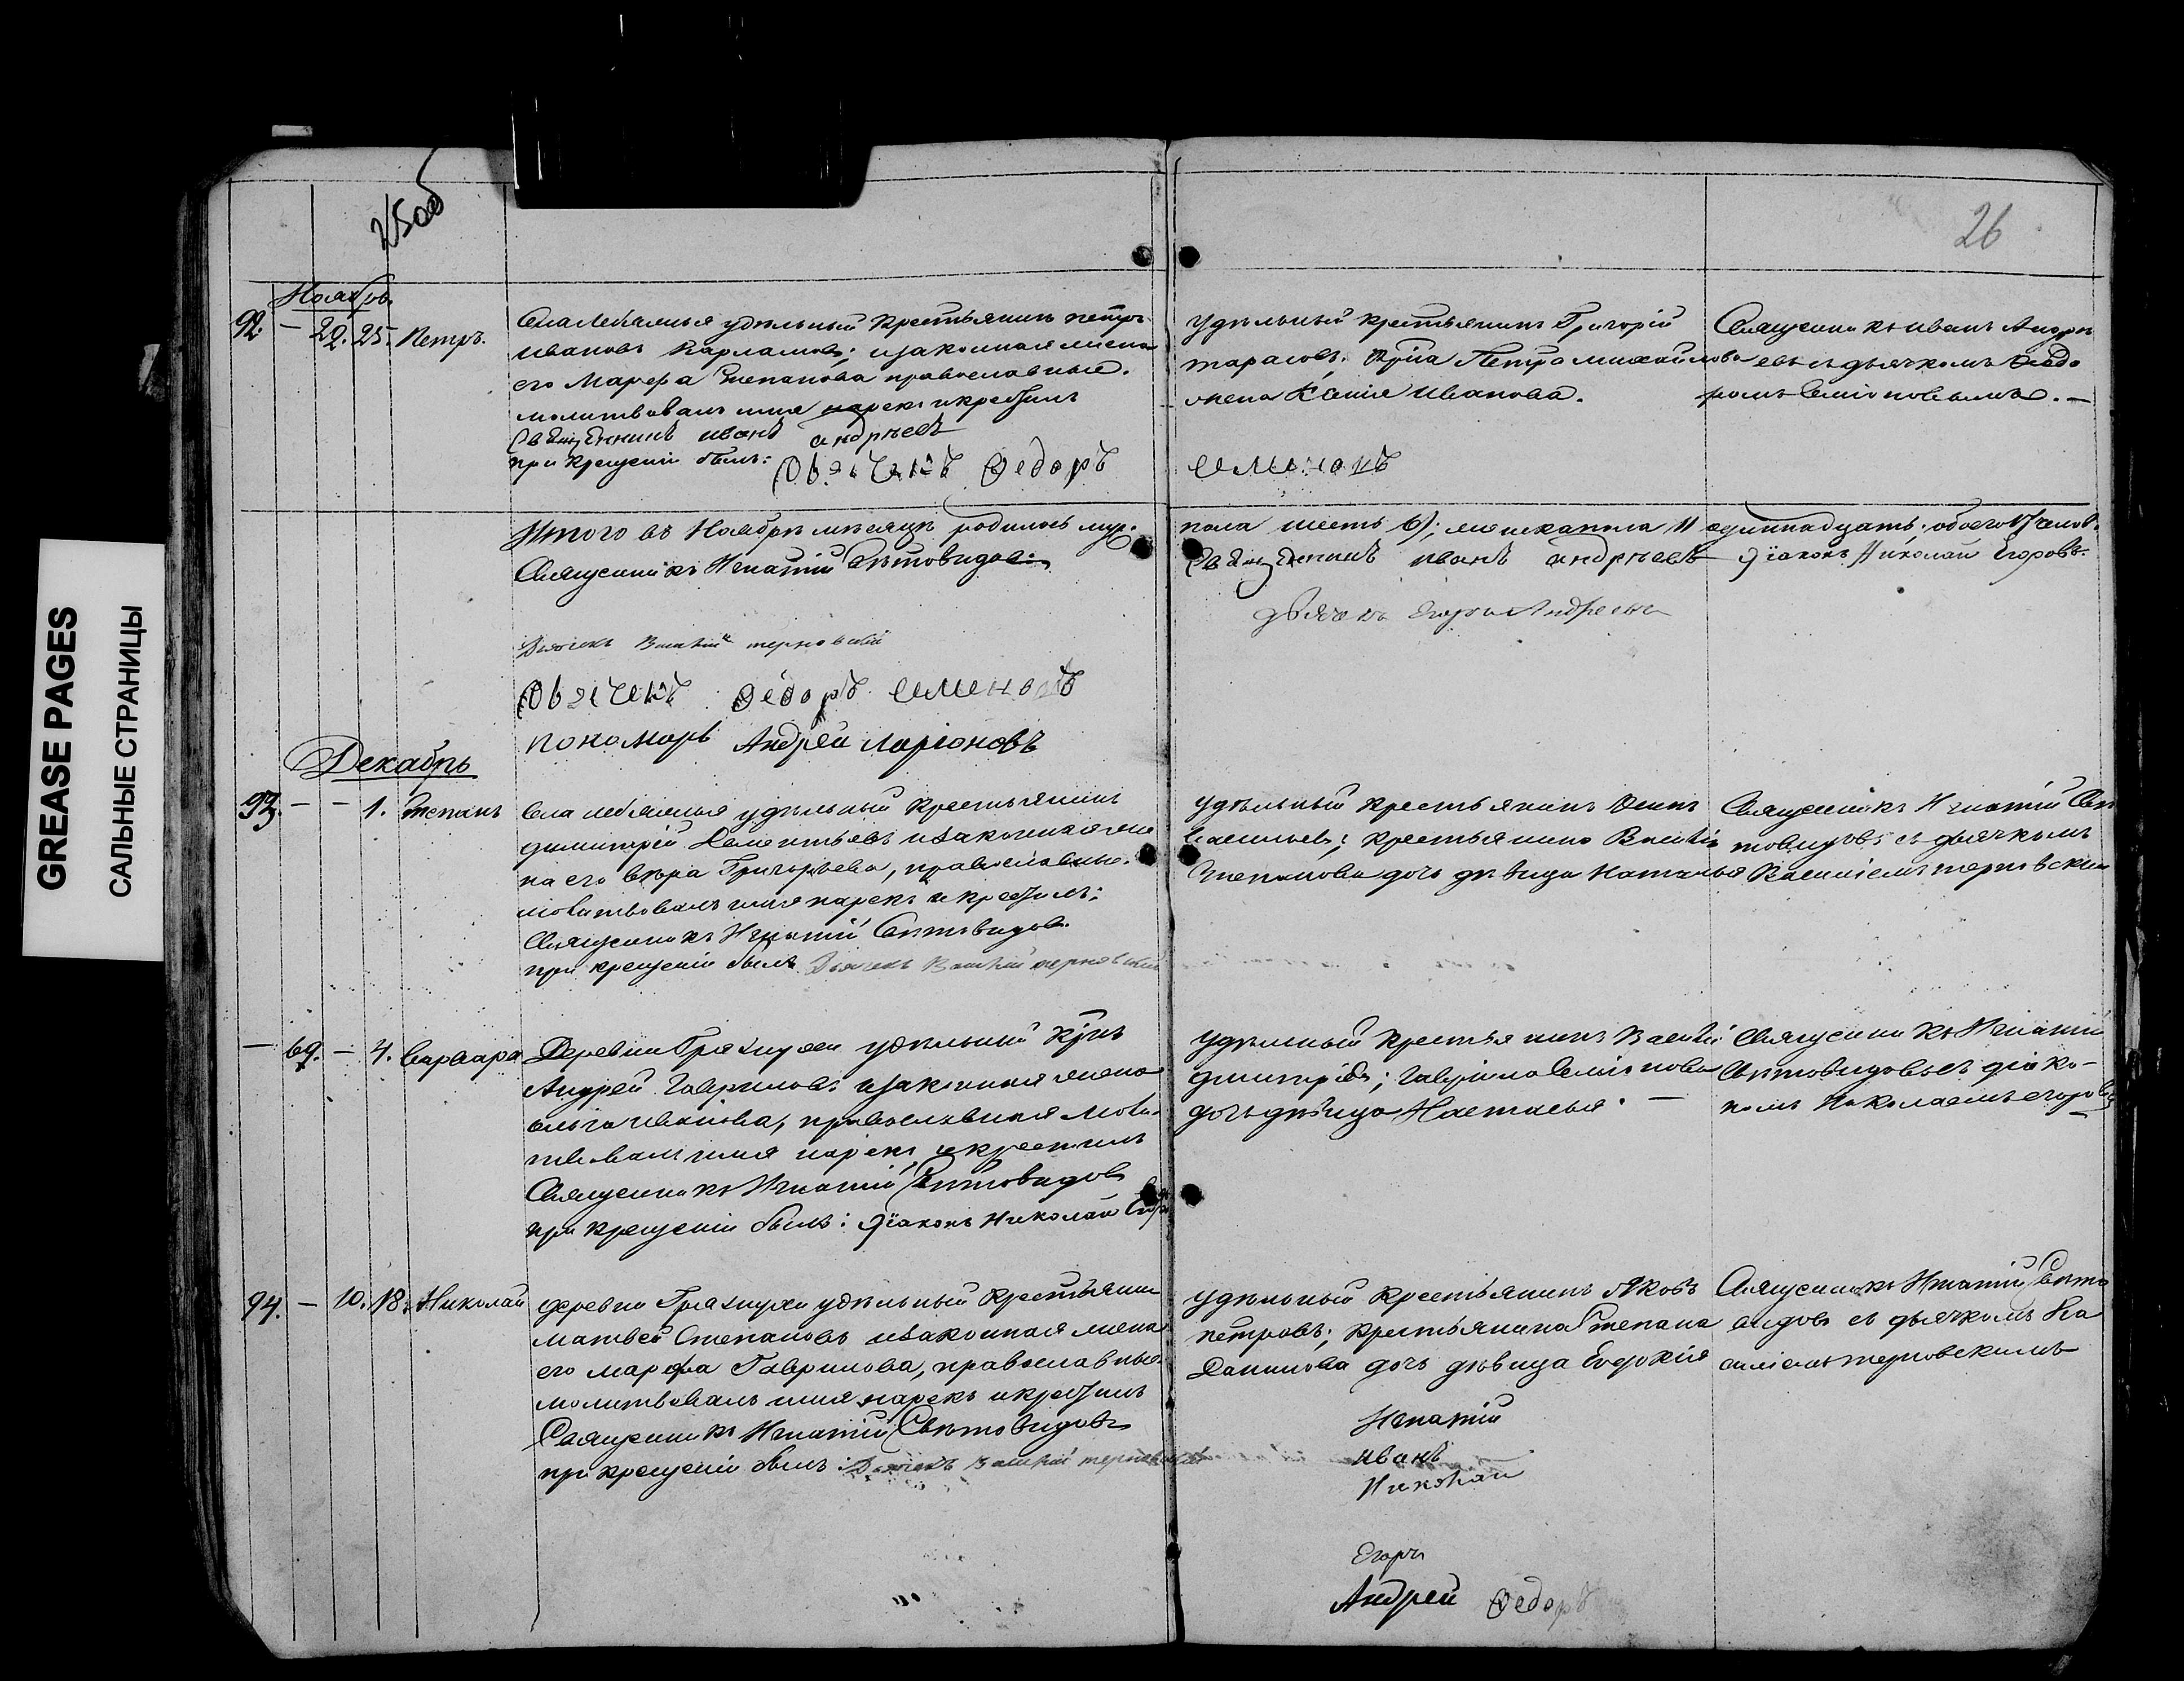 GREASE PAGES
САЛЬНЫЕ СТРАНИЦЫ
25об
26
Ноябрь
92. — 22. 25. Петръ.
Села Лебяжья удѣльный крестьянинъ петръ
ивановъ Варламовъ; изаконная жена
его Марѳа Степанова православные.
молитвовалъ имя нарекъ икрестилъ
Священникъ иванъ андрѣевъ
при крещеніи былъ: Дьячекъ Ѳедоръ
удѣльный крестьянинъ Григорій
тарасовъ; крна Петра михайлова
жена Ксенія иванова.
семеновъ
Священникъ иванъ Андрѣ
евъ съ дьячкомъ Ѳедо
ромъ Семіоновымъ. —
Итого въ Ноябрѣ мѣсяцѣ родилось муж.
Священникъ Игнатій Свѣтовидовъ
пола шесть 6); женска пола 11 одиннадцать; обоего 17 челов.
Священникъ иванъ андрѣевъ
Діаконъ Николай Егоровъ.
дьячекъ Егоръ Андреевъ
Дьячекъ Василій терновскій
Дьячекъ Ѳедоръ семеновъ
пономарь Андрей ларіоновъ
Декабрь
93. — — 1. Степанъ
Села лебяжья удѣльный крестьянинъ
димитрій Дементьевъ изаконная же
на его вѣра Григорьева, православные.
молитвовалъ имя нарекъ и крестилъ:
Священникъ Игнатій Свѣтовидовъ
при крещеніи былъ Дьячекъ Василій терновскій
удѣльный крестьянинъ Осипъ
васильевъ; крестьянина Василія
Степанова дочь дѣвица Наталья
Священникъ Игнатій Свѣ
товидовъ съ дьячкомъ
Василіемъ терновским
— 69. — 4. Варвара
Деревни Грязнухи удѣльный крнъ
Андрей Гавриловъ изаконная жена
ольга иванова, православныя моли
твовалъ имя нарекъ икрестилъ
Священникъ Игнатій Свѣтовидовъ
при крещеніи былъ: Діаконъ Николай Егоро
удѣльный крестьянинъ Василій
димитріевъ; гаврила Семіонова
дочь дѣвица Настасья. —
Священникъ Игнатій
Свѣтовидовъ съ діако-
номъ Николаемъ егоровы
94. — 10. 18. Николай
деревни Грязнухи удѣльный крестьянин
матвей Степановъ изаконная жена
его марѳа Гаврилова, православные
молитвовалъ имя нарекъ икрестилъ
Священникъ Игнатій Свѣтовидовъ
при крещеніи былъ: Дьячекъ Василій терновскій
удѣльный крестьянинъ Яковъ
петровъ; крестьянина Степана
Данилова дочь дѣвица Евдокія
Священникъ Игнатій Свѣто
видовъ съ дьячкомъ Ва
силіемъ терновскимъ
Игнатій
иванъ
Николай
Егоръ
Андрей Ѳедоръ